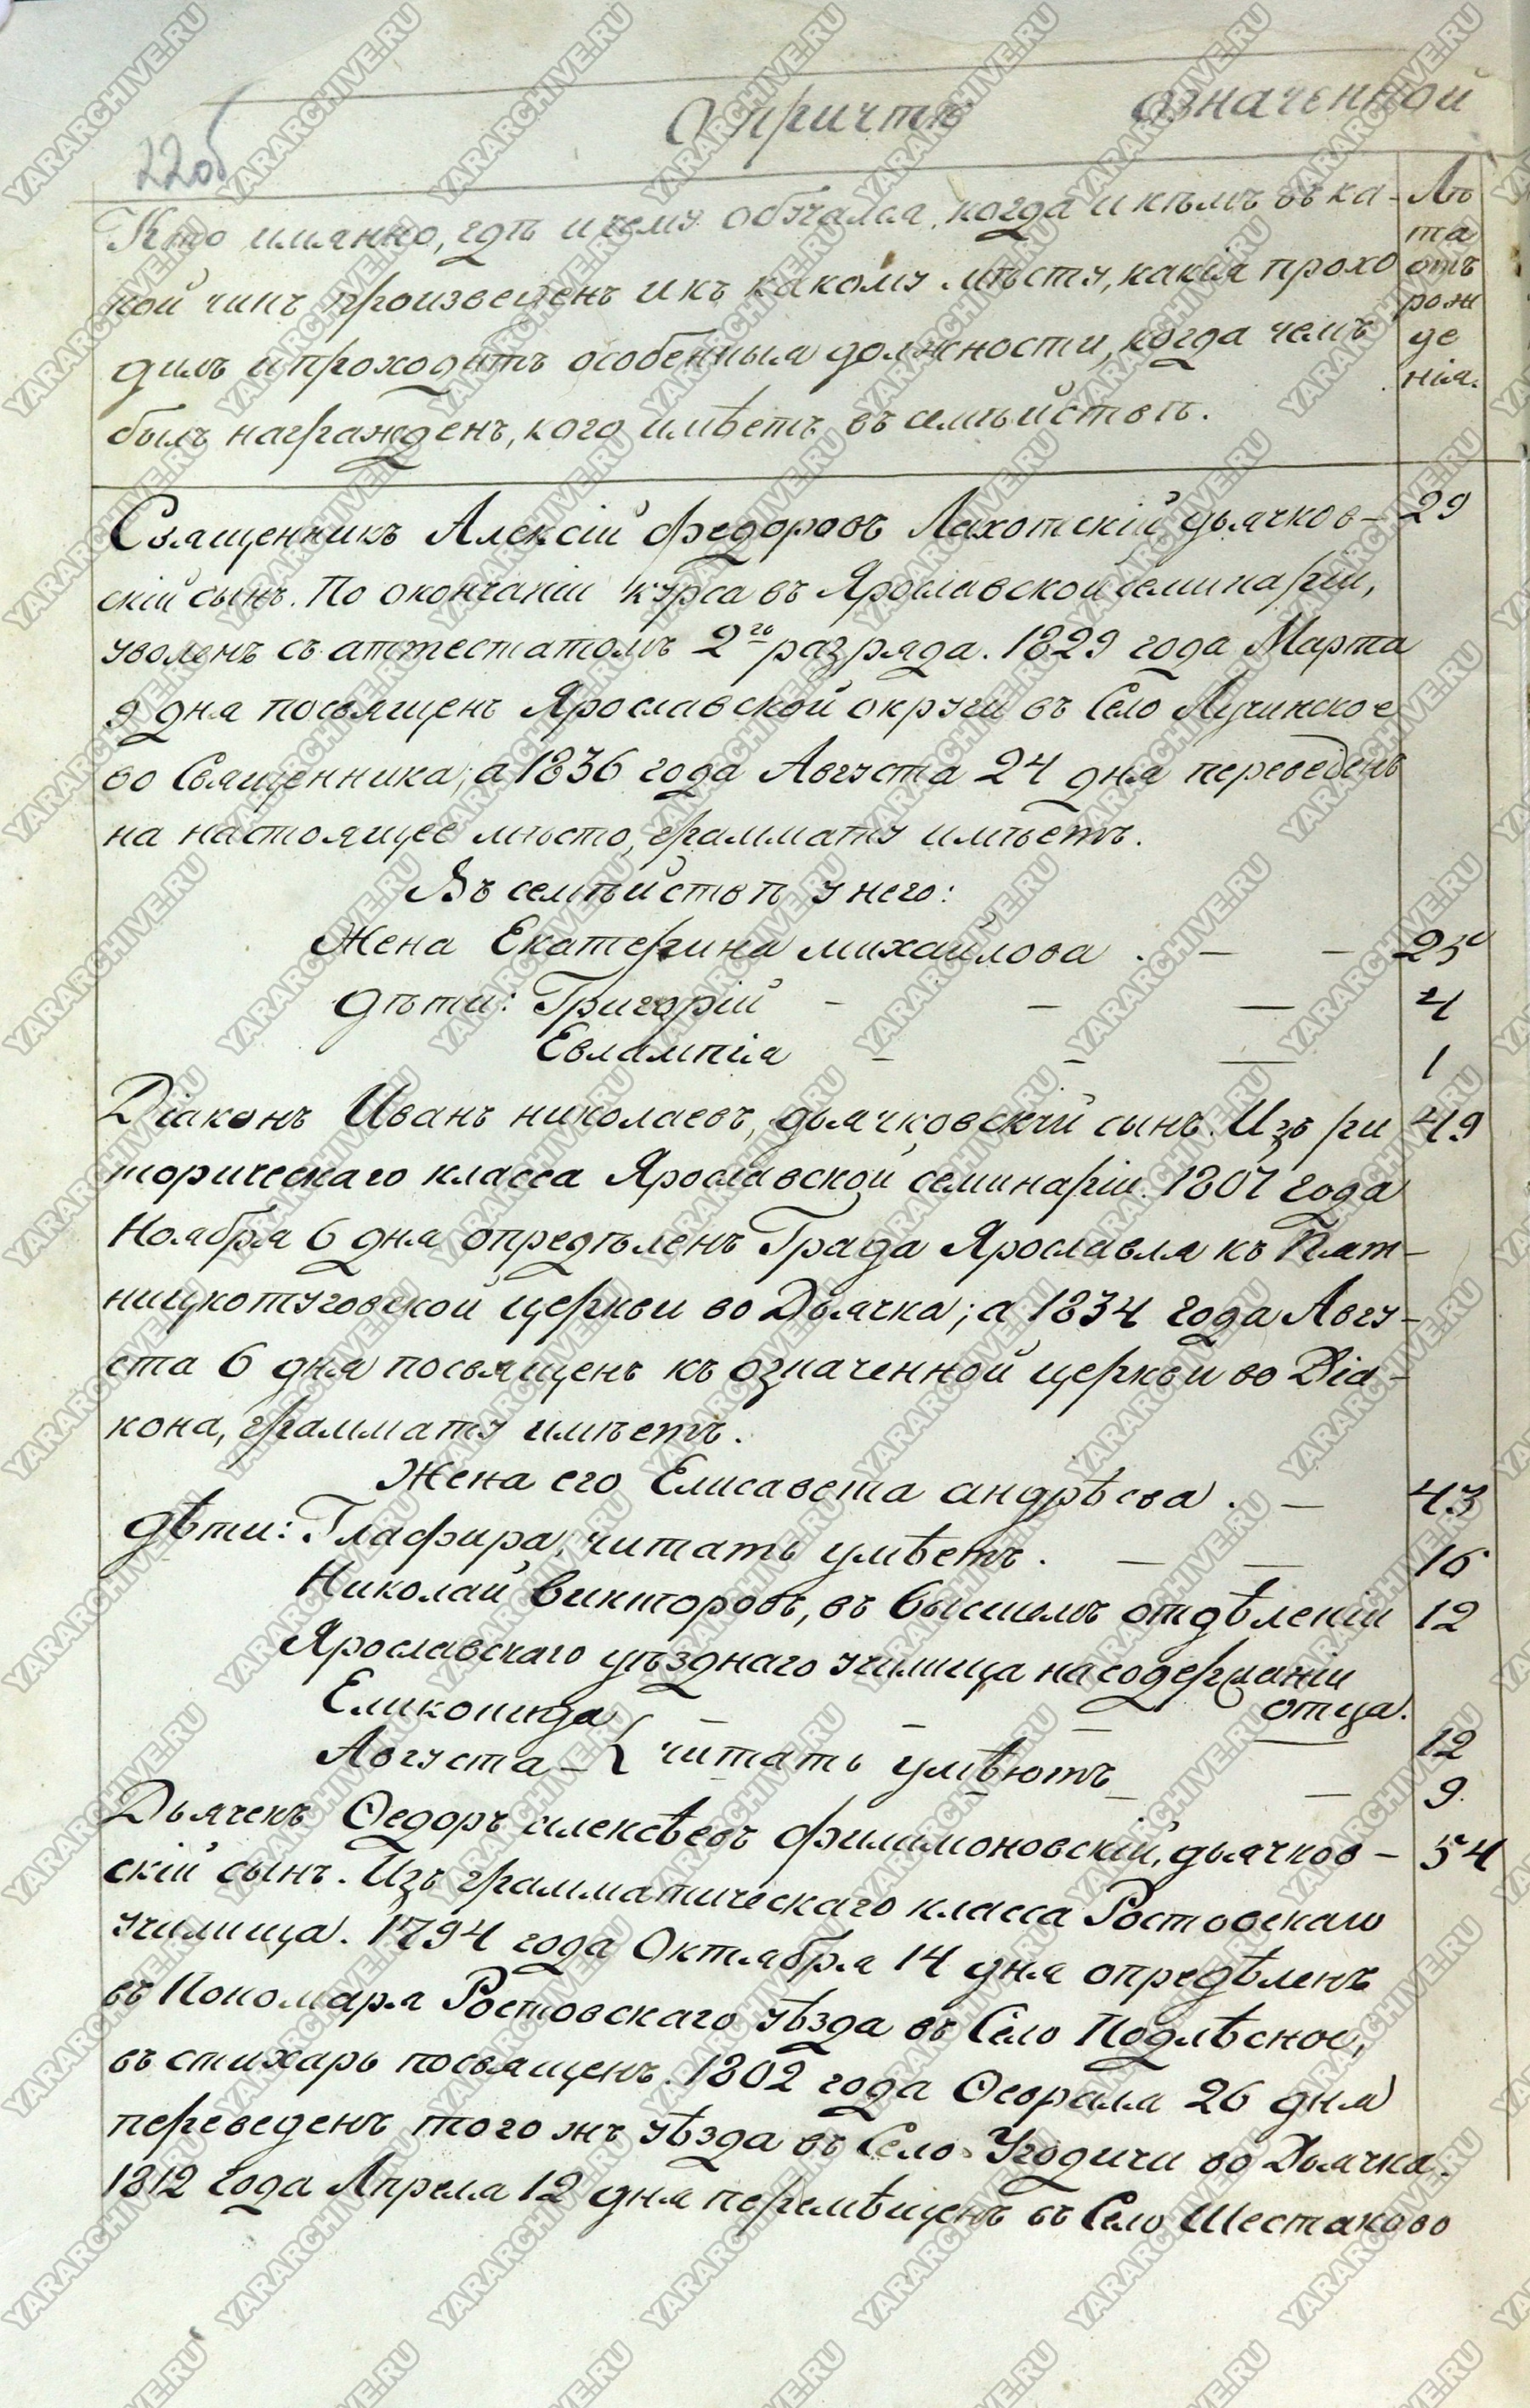 О причтѣ означенной
22об
Кто имянно, гдѣ и чему обучался, когда и кѣмъ въ ка-
кой чинъ произведенъ и къ какому мѣсту, какія прохо
дилъ и проходитъ особенныя должности, когда чемъ
былъ награжденъ, кого имѣетъ въ семѣйствѣ.
Лѣ
та
отъ
рож
де
нія.
Священникъ Алексій Федоровъ Лахотскій дьячков- 29
скій сынъ. По окончаніи курса въ Ярославской семинаріи,
уволенъ съ аттестатомъ 2го разряда. 1829 года Марта
9 дня посвященъ Ярославской округи въ Село Лучинское
во Священника; а 1836 года Августа 24 дня переведенъ
на настоящее мѣсто, граммату имѣетъ.
Въ семѣйствѣ у него:
Жена Екатерина михайлова . — — 25
дѣти: Григорій — — — 4
Евлампія — — — 1
Діаконъ Иванъ николаевъ, дьячковскій сынъ. Изъ ри 49
торическаго класса Ярославской семинаріи. 1807 года
Ноября 6 дня опредѣленъ Града Ярославля къ Пят-
ницкотуговской церкви во Дьячка; а 1834 года Авгу-
ста 6 дня посвященъ къ означенной церкви во Діа-
кона, граммату имѣетъ.
Жена его Елисавета андрѣева . — 43
дѣти: Глафира, читать умѣетъ . — — 16
Николай викторовъ, въ высшемъ отдѣленіи 12
Ярославскаго уѣзднаго училища на содержаніи
отца.
Еликонида — — — — 12
Августа — { читать умѣютъ — — 9.
Дьячекъ Ѳедоръ алексѣевъ филимоновскій, дьячков- 54
скій сынъ. Изъ грамматическаго класса Ростовскаго
училища. 1794 года Октября 14 дня опредѣленъ
въ Пономаря Ростовскаго уѣзда въ Село Подлѣсное,
въ стихарь посвященъ. 1802 года Ѳевраля 26 дня
переведенъ того жъ уѣзда въ Село Угодичи во Дьячка.
1812 года Апреля 12 дня перемѣщенъ въ Село Шестаково